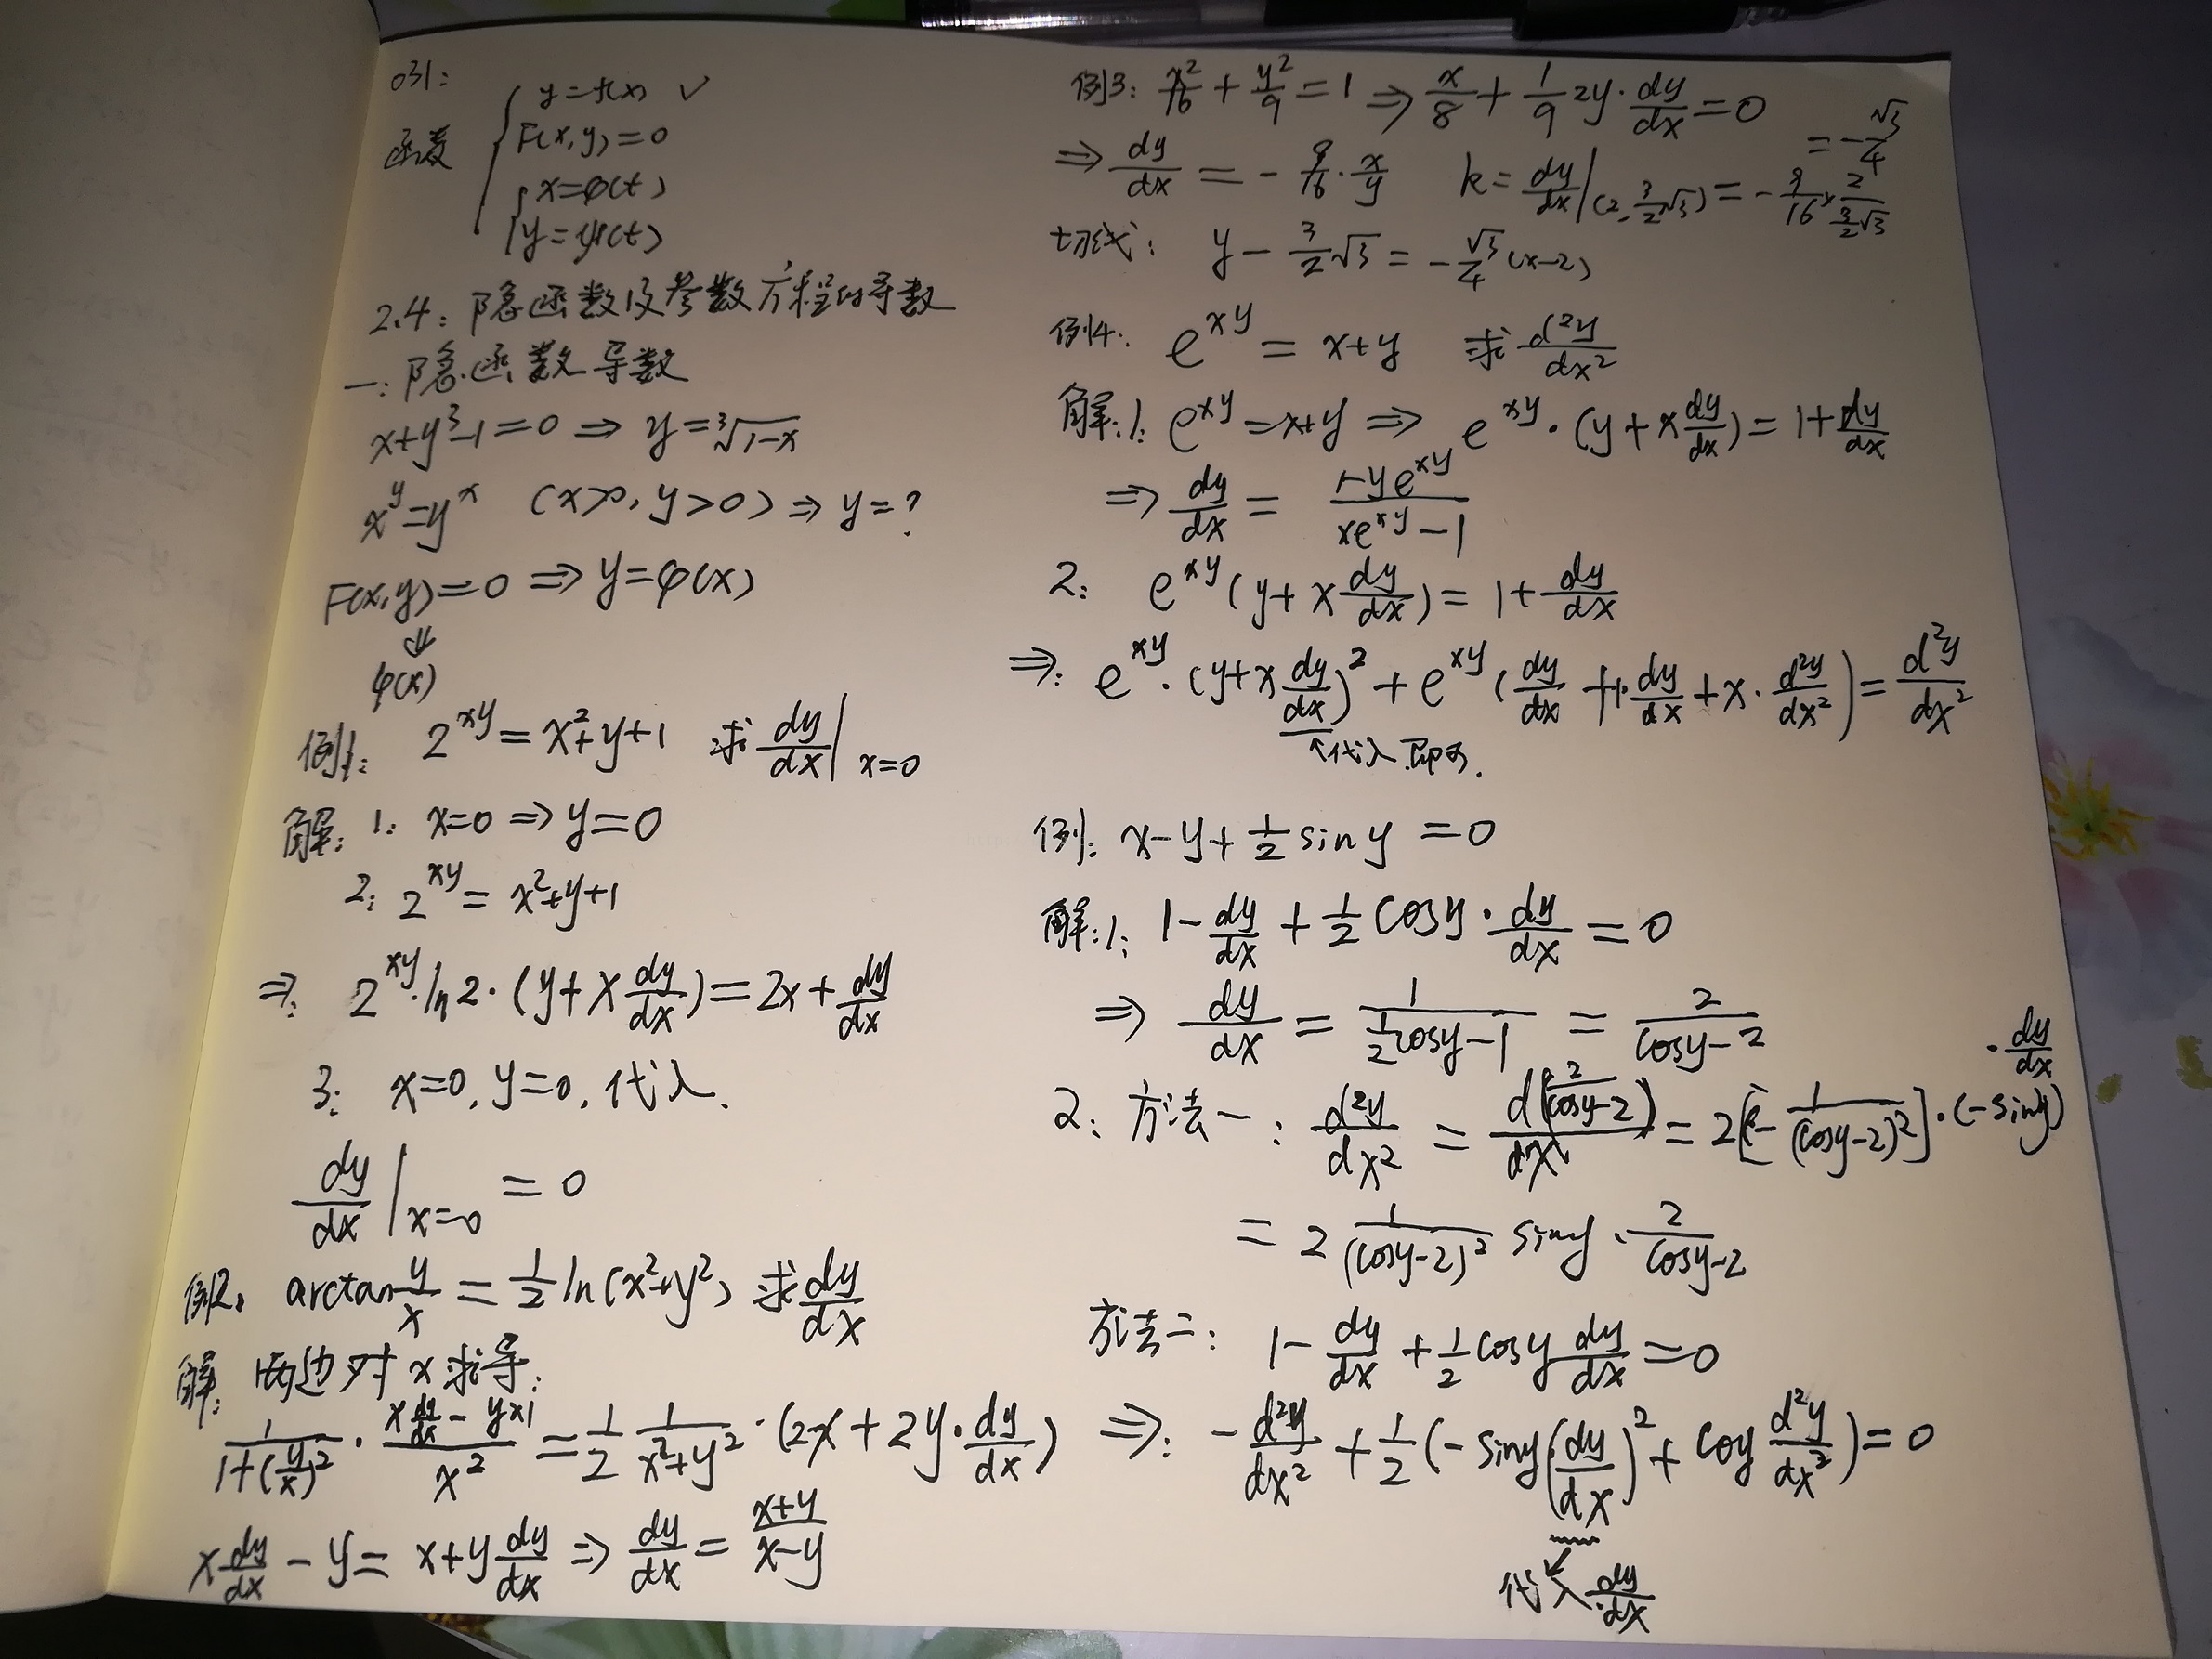 031:
函数 { y=f(x) ✓
F(x,y)=0
{ x=φ(t)
y=ψ(t)
2.4: 隐函数及参数方程的导数
一: 隐函数导数
x+y³-1=0 ⇒ y=∛(1-x)
x^y=y^x (x>0, y>0) ⇒ y=?
F(x,y)=0 ⇒ y=φ(x)
⇓
φ(x)
例1: 2^(xy)=x²+y+1 求 dy/dx|x=0
解: 1: x=0 ⇒ y=0
2: 2^(xy)=x²+y+1
⇒: 2^(xy)·ln2·(y+x dy/dx)=2x+dy/dx
3: x=0, y=0, 代入.
dy/dx|x=0 =0
例2: arctan y/x = 1/2 ln(x²+y²) 求 dy/dx
解: 两边对x求导:
1/(1+(y/x)²)·(x dy/dx - y×1)/x² = 1/2 1/(x²+y²)·(2x+2y·dy/dx)
x dy/dx - y = x+y dy/dx ⇒ dy/dx = (x+y)/(x-y)
例3: x²/16 + y²/9 = 1 ⇒ x/8 + 1/9 2y·dy/dx = 0
⇒ dy/dx = - 9/16·x/y k= dy/dx|(2, 3/2√3) = - 9/16 × 2/(3/2√3) = -√3/4
切线: y - 3/2√3 = -√3/4 (x-2)
例4: e^(xy) = x+y 求 d²y/dx²
解: 1: e^(xy)=x+y ⇒ e^(xy)·(y+x dy/dx) = 1+ dy/dx
⇒ dy/dx = (1-ye^(xy))/(xe^(xy)-1)
2: e^(xy)(y+x dy/dx) = 1+ dy/dx
⇒: e^(xy)·(y+x dy/dx)² + e^(xy)(dy/dx + 1·dy/dx + x·d²y/dx²) = d²y/dx²
↑代入即可.
例: x-y+1/2 sin y =0
解: 1: 1- dy/dx + 1/2 cos y·dy/dx = 0
⇒ dy/dx = 1/(1/2cosy-1) = 2/(cosy-2)
2: 方法一: d²y/dx² = d(2/(cosy-2))/dx = 2[- 1/(cosy-2)²]·(-siny)·dy/dx
= 2 1/(cosy-2)² siny·2/(cosy-2)
方法二: 1- dy/dx + 1/2 cosy dy/dx = 0
⇒: - d²y/dx² + 1/2(-siny(dy/dx)² + coy d²y/dx²) = 0
代入 dy/dx